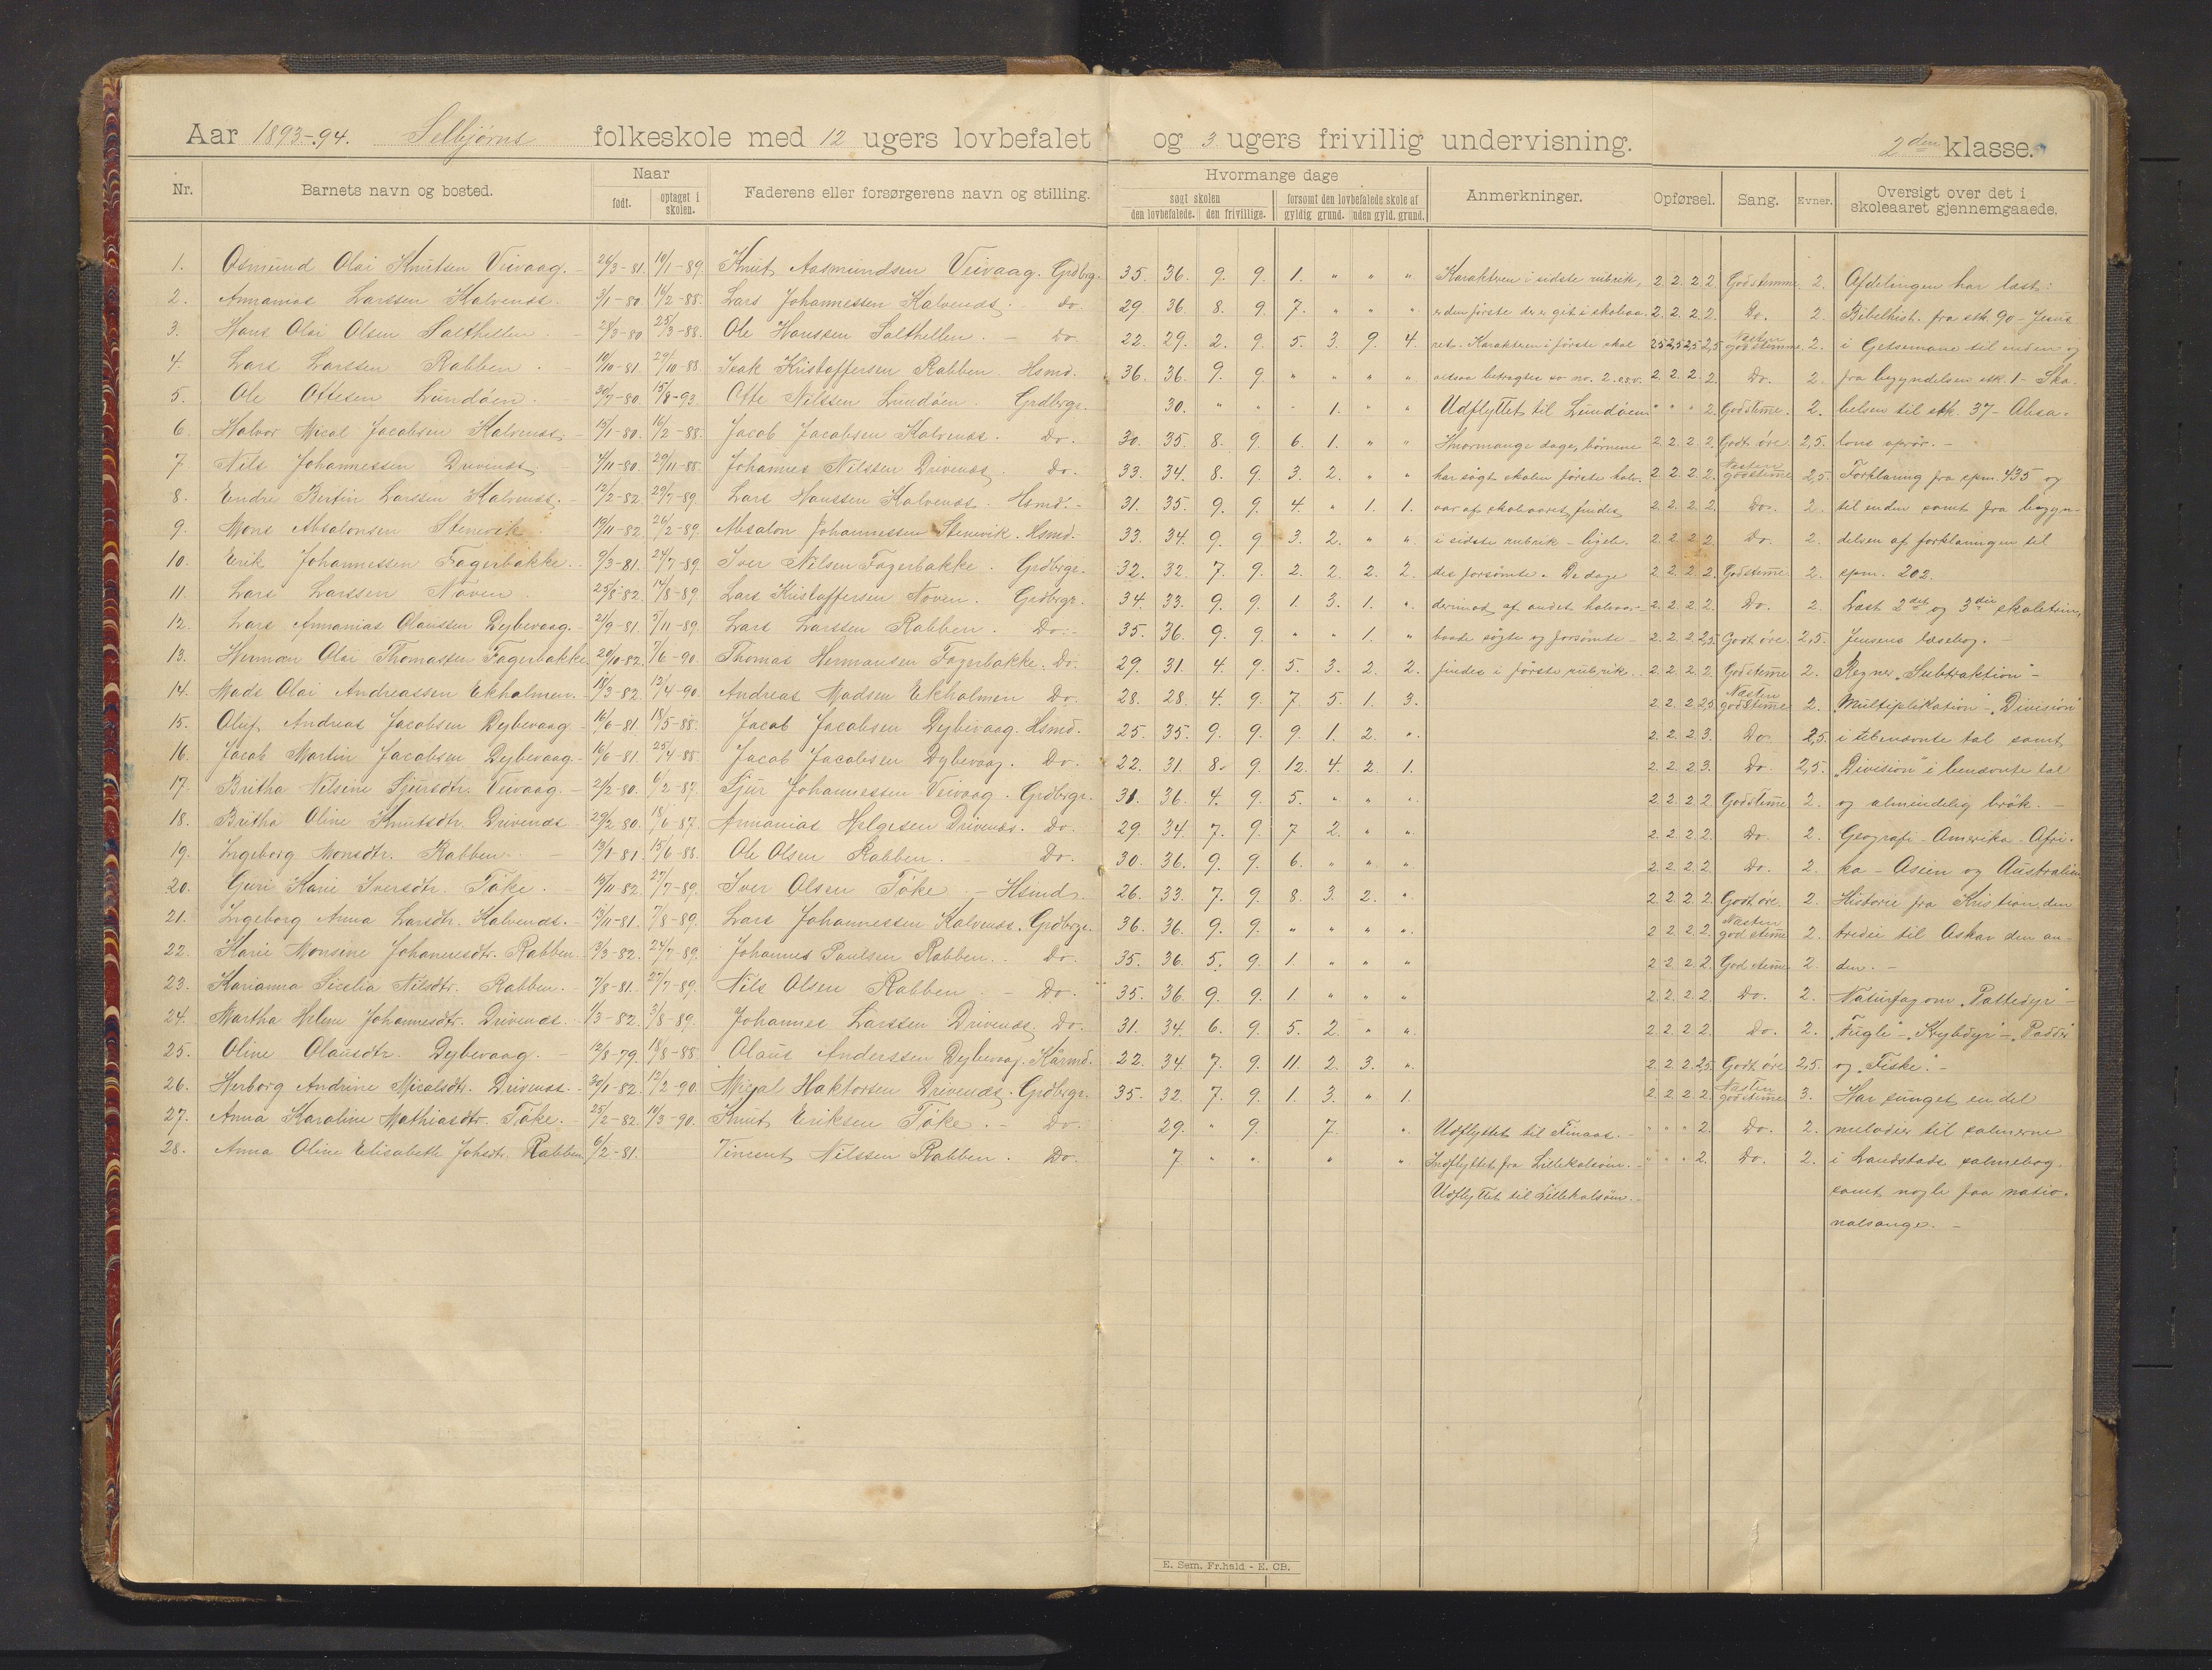 Aar 1893-94. Selbjørns folkeskole med 12 ugers lovbefalet og 3 ugers frivillig undervisning. 2den klasse.
Nr. Barnets navn og bosted. Naar født. optaget i skolen. Faderens eller forsørgerens navn og stilling. Hvormange dage søgt skolen den lovbefalede. den frivillige. forsømt den lovbefalede skole af gyldig grund. uden gyld. grund. Anmerkninger. Opførsel. Sang. Evner. Oversigt over det i skoleaaret gjennemgaaede.
1. Osmund Olai Knutsen Veivaag. 26/3-81. 10/1-89 Knut Aasmundsen Veivaag. Grdbrg. 35. 36. 9. 9. 1. " " " Karakteren i sidste rubrik, 2. 2. 2. 2. God stemme. 2. Afdelingen har læst:
2. Annanias Larssen Kalvenæs. 3/1-80. 16/2-88. Lars Johannessen Kalvenæs. Do. 29 36. 8. 9. 7. " " " er den første der er git i skoleaa- 2. 2. 2. 2. Do. 2. Bibelhist. fra stk. 90 - Jesus
3. Hans Olai Olsen Salthellen 28/3-80 25/3-88. Ole Hanssen Salthellen. - Do 22. 29. 2. 9. 5. 3. 9. 4. ret. Karakteren i første skal 2,5 2,5 2,5 2,5 Næsten god stemme 2. i Getsemane til enden og
4. Lars Larssen Rabben. 10/10-81. 29/10-88. Isak Kristoffersen Rabben. Hsmd. 36. 36. 9. 9. " " " " altsaa betragtes so no. 2. osv. 2. 2. 2. 2. Do. 2. fra begyndelsen stk. 1 - Ska-
5. Ole Ottesen Lundøen. 30/7-80. 15/8-93. Otte Nilssen Lundøen Grdbrgr. 30. " " - 1. " " Udflyttet til Lundøen " " " 2. God steme. 2. belsen til stk. 37 - Absa-
6. Halvor Mical Jacobsen Kalvenæs. 13/1-80. 16/2-88. Jacob Jacobsen Kalvenæs. Do. 30. 35. 8. 9. 6. 1. " " Hvormange dage, børnene 2. 2. 2. 2. Godt øre. 2,5. lons oprør. -
7 Nils Johannessen Drivenæs 4/11-80. 29/11-88. Johannes Nilssen Drivenæs. Do. 33. 34. 8. 9. 3. 2. " " har søgt skolen første halv- 2. 2. 2. 2. Næsten god steme 2,5. Forklaring fra spm. 435 og
8. Endre Bertin Larssen Kalvenæs. 12/2-82. 29/7-89. Lars Hanssen Kalvenæs. Hsmd. 31. 35. 9. 9. 4. " 1. 1. aar af skoleaaret, findes 2. 2. 2. 2. Do. 2. til enden samt fra begyn-
9. Mons Absalonsen Stenevik. 19/11-82. 26/2-89. Absalon Johannessen Stenevik. Hsmd. 33. 34. 9. 9 3. 2. " " i sidste rubrik - ligele- 2. 2. 2. 2. Do. 2. delsen af forklaringen til
10. Erik Johannessen Fagerbakke. 9/3-81. 24/7-89 Iver Nilsen Fagerbakke. Grdbrgr. 32. 32. 7. 9. 2. 2. 2. 2. des forsømte. De dage 2. 2. 2. 2. God steme 2. spm. 202.
11. Lars Larssen Noven. 25/8-82. 14/8-89. Lars Kristoffersen Noven. Grdbrgr. 34. 33. 9. 9. 1. 3. 1. " derimod af andet halvaar- 2. 2. 2. 2. Do. 2. Læst 2det og 3die skoletrin,
12. Lars Annanias Olaussen Dybevaag. 21/9-81. 5/11-89. Lars Larssen Rabben. Do. 35. 36. 9. 9. " " 1. " baade søgte og forsømte - 2. 2. 2. 2,5 Godt øre. 2,5. Jensens læsebog. -
13. Herman Olai Thomassen Fagerbakke 20/10-82. 7/6-90. Thomas Hermansen Fagerbakke. Do. 29. 31. 4. 9. 5. 3. 2. 2. findes i første rubrik. 2. 2. 2. 2. God steme 2. Regnet "Subtraktion" -
14. Mads Olai Andreassen Ekholmen. 18/3-82. 12/4-90. Andreas Madsen Ekholmen Do. 28. 28. 4. 9. 7 5. 1. 3. 2. 2. 2. 2,5 Næsten god steme 2. "Multiplikation" - "Division"
15. Oluf Andreas Jacobsen Dybevaag 16/6-81. 18/5-88. Jacob Jacobsen Dybevaag. Hsmd. 25. 35. 9. 9. 9. 1. 2. " 2. 2. 2. 3. Do. 2,5. i ubenævnte tal samt
16. Jacob Martin Jacobsen Dybevaag. 16/6-81. 25/4-88. Jacob Jacobsen Dybevaag. Do. 22. 31. 8. 9. 12. 4. 2. 1. 2. 2. 2. 3. Do. 2,5. "Division" i benævnte tal
17. Britha Nilsine Sjursdtr. Veivaag. 21/2-80. 6/2-87. Sjur Johannessen Veivaag. Grdbrgr. 31. 36. 4. 9. 5. " " " 2. 2. 2. 2. God steme 2. og almindelig brøk. -
18. Britha Oline Knutsdtr. Drivenæs 29/2-80. 18/6-87. Annanias Helgesen Drivenæs. Do. 29. 34. 7. 9. 7 2. " " 2. 2. 2. 2. Do. 2. Geografi - Amerika - Afri-
19. Ingeborg Monsdtr. Rabben. 13/1-81. 15/6-88. Ole Olsen Rabben. Do. 30. 36. 9. 9. 6. " " " 2. 2. 2. 2. Do. 2. ka - Asien og Australien
20. Guri Karie Iversdtr. Tøke. 15/11-82. 27/7-89. Iver Olsen Tøke. - Hsmd. 26. 33. 7. 9. 8. 3. 2. " 2. 2. 2. 2. Godt øre. 2. Historie fra Kristian den
21. Ingeborg Anna Larsdtr. Kalvenæs. 13/11-81. 7/8-89. Lars Johannessen Kalvenæs. Grdbrgr. 36. 36. 9. 9. " " " " 2 2. 2. 2. Næsten god steme 2. tredie til Oskar den an-
22. Karie Monsine Johannesdtr. Rabben 3/3-82. 24/7-89. Johannes Paulsen Rabben. Do. 35. 36. 5. 9. 1. " " " 2. 2. 2. 2. God steme 2. den. -
23. Karianna Sicelia Nilsdtr. Rabben. 7/8-81. 27/7-89. Nils Olsen Rabben. - Do. 35. 36. 9. 9. 1. " " " 2 2. 2. 2. Do. 2. Naturfag om "Pattedyr" -
24. Martha Helene Johannesdtr. Drivenæs. 1/3-82. 3/8-89. Johannes Larssen Drivenæs. Do. 31. 34. 6. 9. 5. 2. " " 2. 2. 2. 2. Do. 2. "Fugle" - "Krybdyr" - "Padder"
25. Oline Olausdtr. Dybevaag. - 12/8-79. 18/8-88. Olaus Anderssen Dybevaag. Kårmd. 22. 34. 7. 9. 11. 2. 3. " 2. 2. 2. 2,5. Godt øre 2,5. og "Fiske". -
26. Herborg Andrine Micalsdtr. Drivenæs. 30/1-82. 12/2-90. Mical Haktorsen Drivenæs. Grdbrgr. 35. 32. 7. 9. 1. 3. " 1. 2. 2. 2. 2. Næsten god steme 3. Har sunget en del
27. Anna Karoline Mathiasdtr. Tøke. 25/2-82. 10/3-90. Knut Eriksen Tøke. - Do. 29. " 9. 7. " Udflyttet til Finaas. - " " " 2. Do. 2. melodier til salmerne
28. Anna Oline Elisabeth Johsdtr. Rabben 6/2-81. Vincent Nilssen Rabben. Do. 7 " " " " Indflyttet fra Lillekalsøen. - " " " 2. Do. 2. i Landstads salmebog,
Udflyttet til Lillekalsøen. - samt nogle faa natio-
nalsange. -
E. Sem. Fr.hald - E. CB.